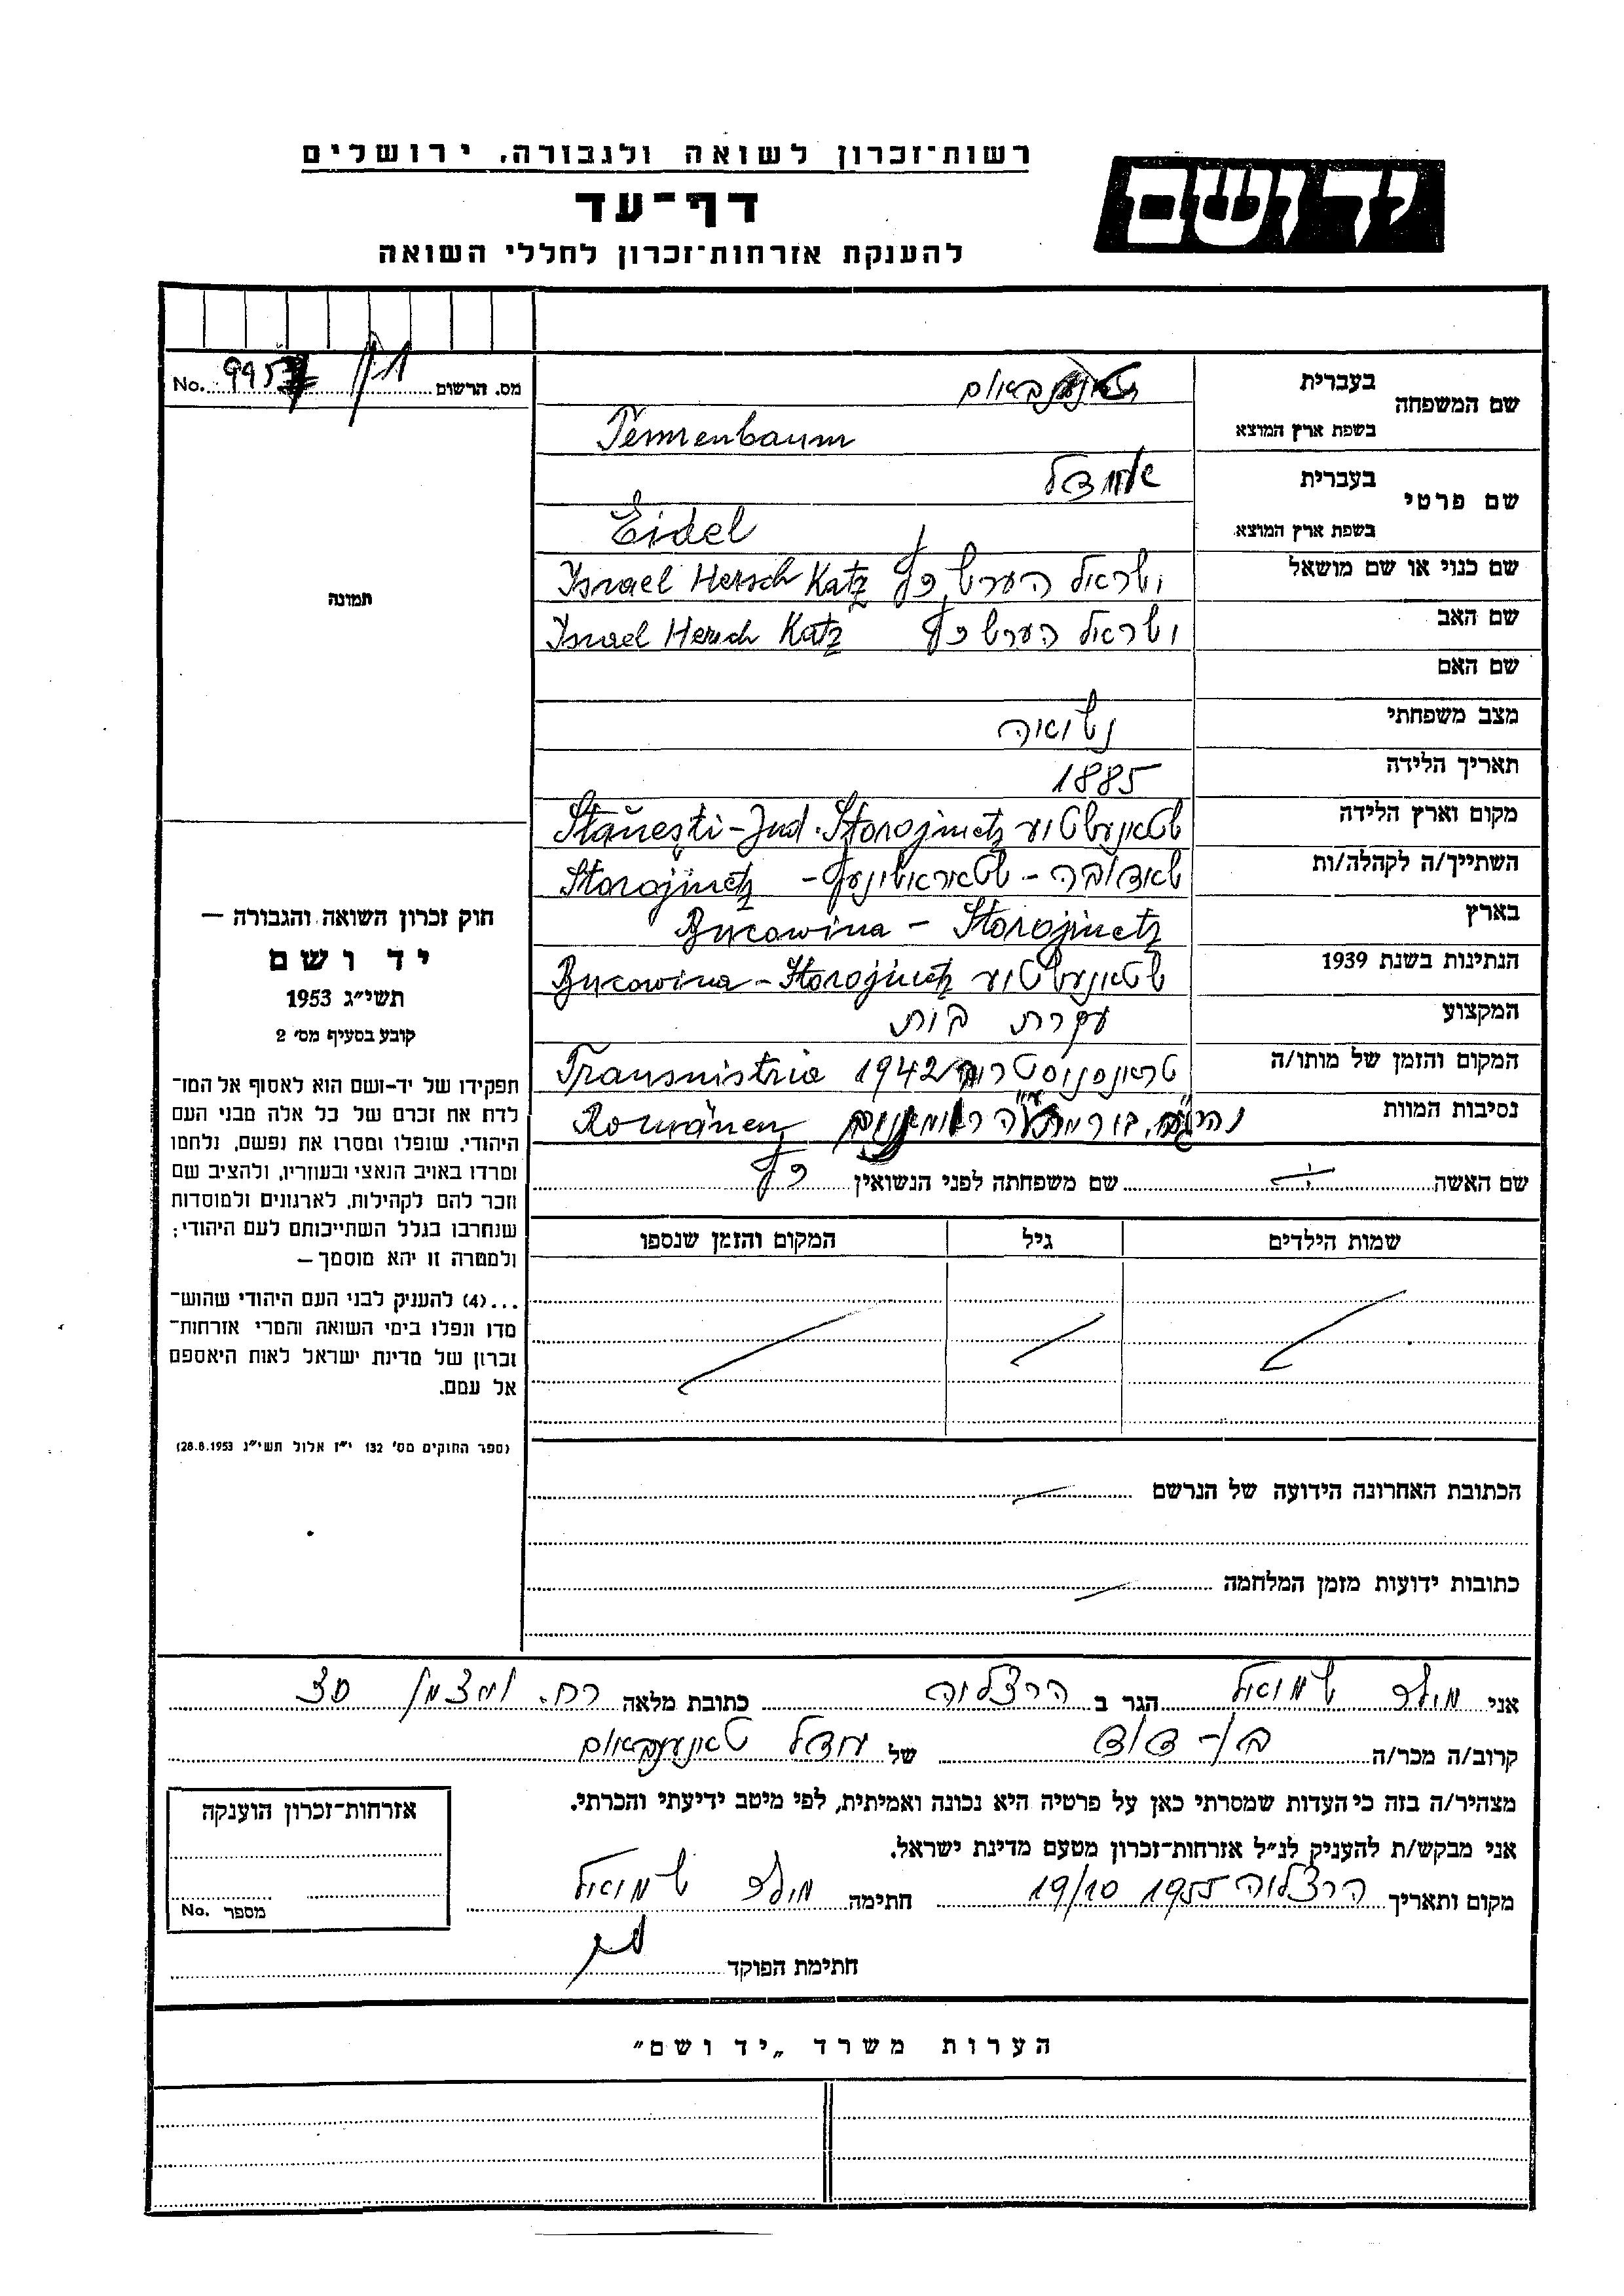 רשות־זכרון לשואה ולגבורה, ירושלים
יד ושם
דף־עד
להענקת אזרחות־זכרון לחללי השואה
מס. הרשום 995 No.
שם המשפחה
בעברית
בשפת ארץ המוצא Tennenbaum
שם פרטי
בעברית איידל
בשפת ארץ המוצא Eidel
שם כנוי או שם מושאל ישראל הערש כץ Israel Hersch Katz
שם האב ישראל הערש כץ Israel Hersch Katz
שם האם
מצב משפחתי נשואה
תאריך הלידה 1885
מקום וארץ הלידה שטאנעשטיע Stăneşti - Jud. Storojinetz
השתייך/ה לקהלה/ות Storojinetz
בארץ Bucowina - Storojinetz
הנתינות בשנת 1939 שטאנעשטיע Bucowina - Storojinetz
המקצוע עקרת בית
המקום והזמן של מותו/ה טראנסניסטריה 1942 Transnistria
נסיבות המוות Romänen
שם האשה שם משפחתה לפני הנשואין כץ
שמות הילדים גיל המקום והזמן שנספו
הכתובת האחרונה הידועה של הנרשם
כתובות ידועות מזמן המלחמה
תמונה
חוק זכרון השואה והגבורה —
יד ושם
תשי״ג 1953
קובע בסעיף מס׳ 2
תפקידו של יד-ושם הוא לאסוף אל המו־
לדת את זכרם של כל אלה מבני העם
היהודי, שנפלו ומסרו את נפשם, נלחמו
ומרדו באויב הנאצי ובעוזריו, ולהציב שם
וזכר להם לקהילות, לארגונים ולמוסדות
שנחרבו בגלל השתייכותם לעם היהודי;
ולמטרה זו יהא מוסמך —
...(4) להעניק לבני העם היהודי שהוש־
מדו ונפלו בימי השואה והמרי אזרחות־
זכרון של מדינת ישראל לאות היאספם
אל עמם.
(ספר החוקים מס׳ 132 י״ז אלול תשי״ג 28.8.1953)
אני שמואל הגר ב הרצליה כתובת מלאה רח. ויצמן
קרוב/ה מכר/ה בן-דוד של איידל טאנענבאום
מצהיר/ה בזה כי העדות שמסרתי כאן על פרטיה היא נכונה ואמיתית, לפי מיטב ידיעתי והכרתי.
אני מבקש/ת להעניק לנ״ל אזרחות־זכרון מטעם מדינת ישראל.
מקום ותאריך הרצליה 19/10 1955 חתימה שמואל
חתימת הפוקד
אזרחות־זכרון הוענקה
מספר No.
הערות משרד „יד ושם״